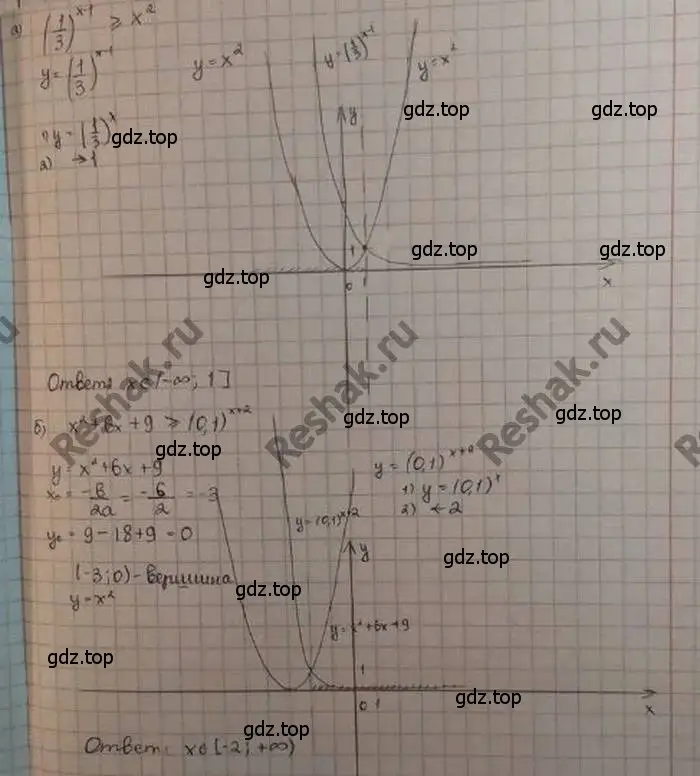 а) (1/3)^(x-1) ≥ x^2
y = (1/3)^(x-1)
y = x^2
y = (1/3)^(x-1)
y = x^2
1) y = (1/3)^x
2) → 1
y
1
0 1
x
Ответ: x ∈ (-∞; 1]
б) x^2 + 6x + 9 ≥ (0,1)^(x+2)
y = x^2 + 6x + 9
x₀ = -b/2a = -6/2 = -3
y₀ = 9 - 18 + 9 = 0
(-3; 0) - вершина
y = x^2
y = (0,1)^(x+2)
1) y = (0,1)^x
2) ← 2
y = (0,1)^(x+2)
y
y = x^2 + 6x + 9
1
0 1
x
Ответ: x ∈ [-2; +∞)
gdz.top
gdz.top
gdz.top
gdz.top
gdz.top
gdz.top
gdz.top
gdz.top
gdz.top
gdz.top
gdz.top
gdz.top
gdz.top
gdz.top
Reshak.ru
Reshak.ru
Reshak.ru